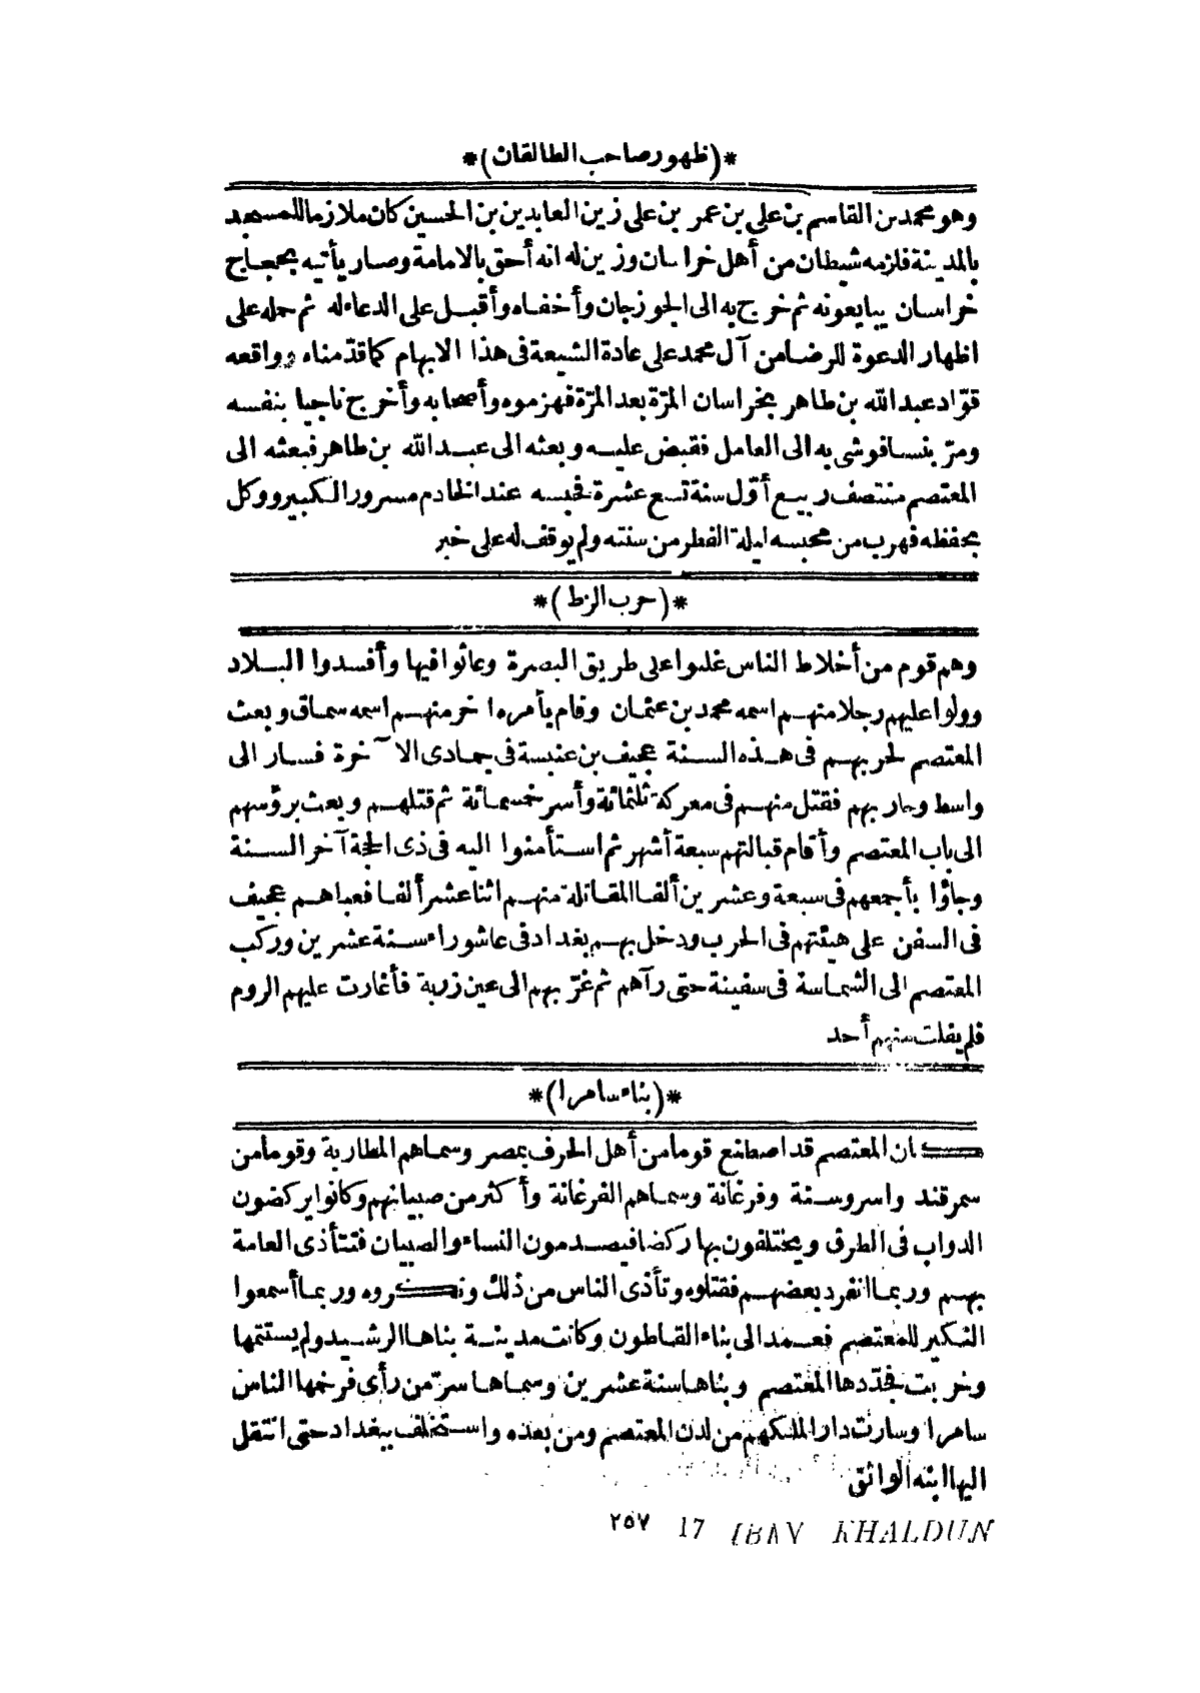 *(ظهور صاحب الطالقان)*
وهو محمد بن القاسم بن علي بن عمر بن علي زين العابدين بن الحسين كان ملازما للمسجد
بالمدينة فلزمه شيطان من أهل خراسان وزين له انه أحق بالامامة وصار يأتيه بحجاج
خراسان يبايعونه ثم خرج به الى الجوزجان وأخفاه وأقبل على الدعاء له ثم حمله على
اظهار الدعوة للرضا من آل محمد على عادة الشيعة فى هذا الابهام كما قدّمناه وواقعه
قوّاد عبد الله بن طاهر بخراسان المرّة بعد المرّة فهزموه وأصحابه وأخرج ناجيا بنفسه
ومرّ بنسا فوشى به الى العامل فقبض عليه وبعثه الى عبد الله بن طاهر فبعثه الى
المعتصم منتصف ربيع أوّل سنة تسع عشرة فحبسه عند الخادم مسرور الكبير ووكل
بحفظه فهرب من محبسه ليلة الفطر من سنته ولم يوقف له على خبر
*(حرب الزط)*
وهم قوم من أخلاط الناس غلبوا على طريق البصرة وعاثوا فيها وأفسدوا البلاد
وولوا عليهم رجلا منهم اسمه محمد بن عثمان وقام بأمره اخر منهم اسمه سماق وبعث
المعتصم لحربهم فى هذه السنة عجيف بن عنبسة فى جمادى الآخرة فسار الى
واسط وحاربهم فقتل منهم فى معركة ثلثمائة وأسر خمسمائة ثم قتلهم وبعث برؤسهم
الى باب المعتصم وأقام قبالتهم سبعة أشهر ثم استأمنوا اليه فى ذى الحجة آخر السنة
وجاؤا بأجمعهم فى سبعة وعشرين ألفا المقاتلة منهم اثنا عشر ألفا فعباهم عجيف
فى السفن على هيئتهم فى الحرب ودخل بهم بغداد فى عاشوراء سنة عشرين وركب
المعتصم الى الشماسة فى سفينة حتى رآهم ثم غرّ بهم الى عين زربة فأغارت عليهم الروم
فلم يفلت منهم أحد
*(بناء سامرا)*
كان المعتصم قد اصطنع قوما من أهل الحرف بمصر وسماهم المطاربة وقوما من
سمرقند واسروسنة وفرغانة وسماهم الفرغانة وأكثر من صبيانهم وكانوا يركضون
الدواب فى الطرق ويختلفون بها ركضا فيصدمون النساء والصبيان فتتأذى العامة
بهم وربما انفرد بعضهم فقتلوه وتأذى الناس من ذلك ونكروه وربما أسمعوا
النكير للمعتصم فعمد الى بناء القاطون وكانت مدينة بناها الرشيد ولم يستتمها
وخربت فجدّدها المعتصم وبناها سنة عشرين وسماها سرّ من رأى فرخمها الناس
سامرا وسارت دار الملكهم من لدن المعتصم ومن بعده واستخلف ببغداد حتى انتقل
اليها ابنه الواثق
٢٥٧ 17 IBNV KHALDUN